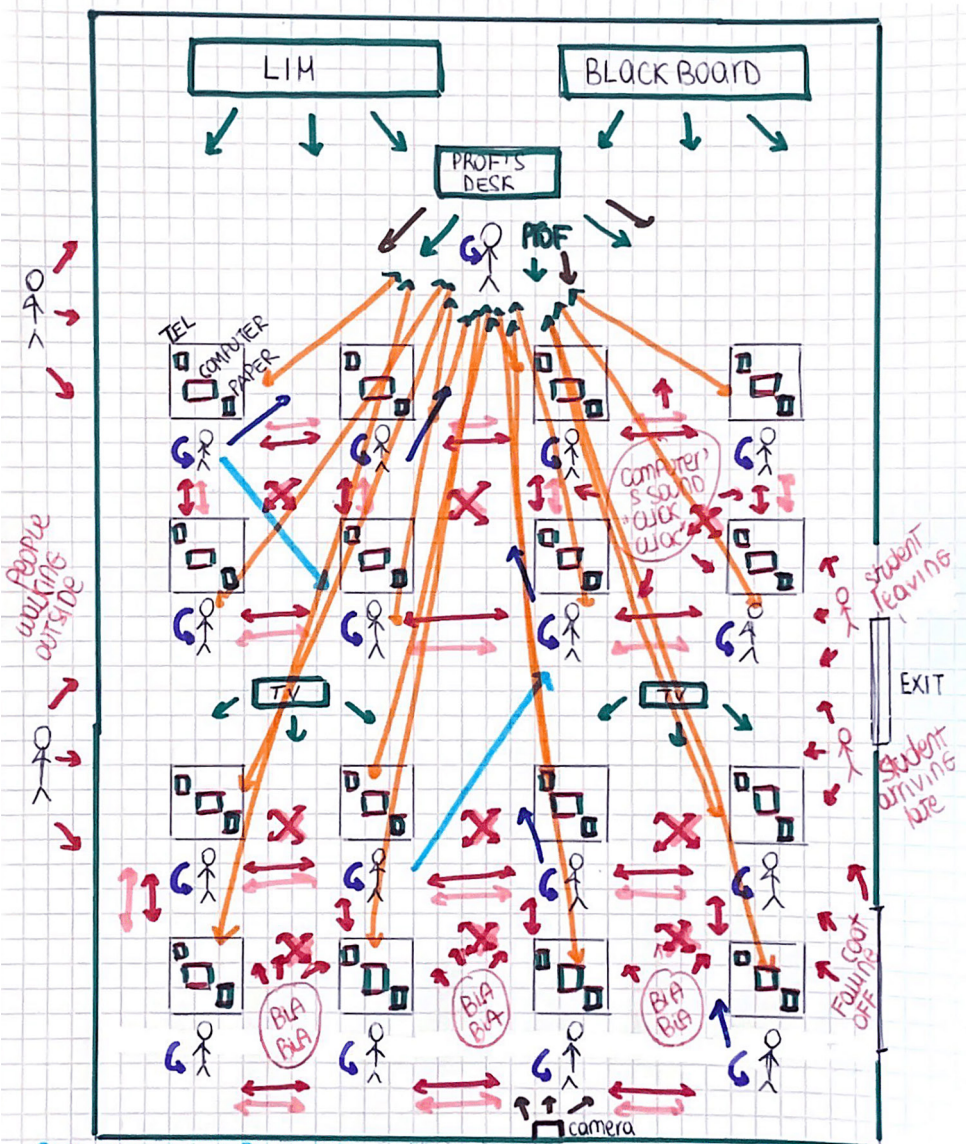 LIM
BLACKBOARD
PROF'S
DESK
PROF
TEL
COMPUTER
PAPER
COMPUTER'
S SOUND
"CLICK
CLICK"
PEOPLE
WALKING
OUTSIDE
student
leaving
TV
TV
EXIT
student
arriving
late
COAT
FALLING
OFF
BLA
BLA
BLA
BLA
BLA
BLA
camera